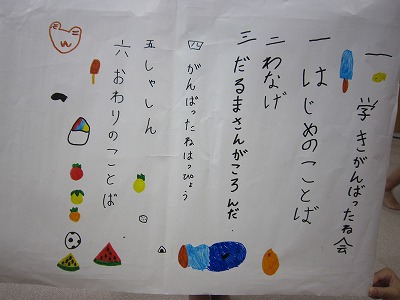 一学きがんばったね会
一 はじめのことば
二 わなげ
三 だるまさんがころんだ.
四 がんばったねはっぴょう
五 しゃしん
六 おわりのことば.